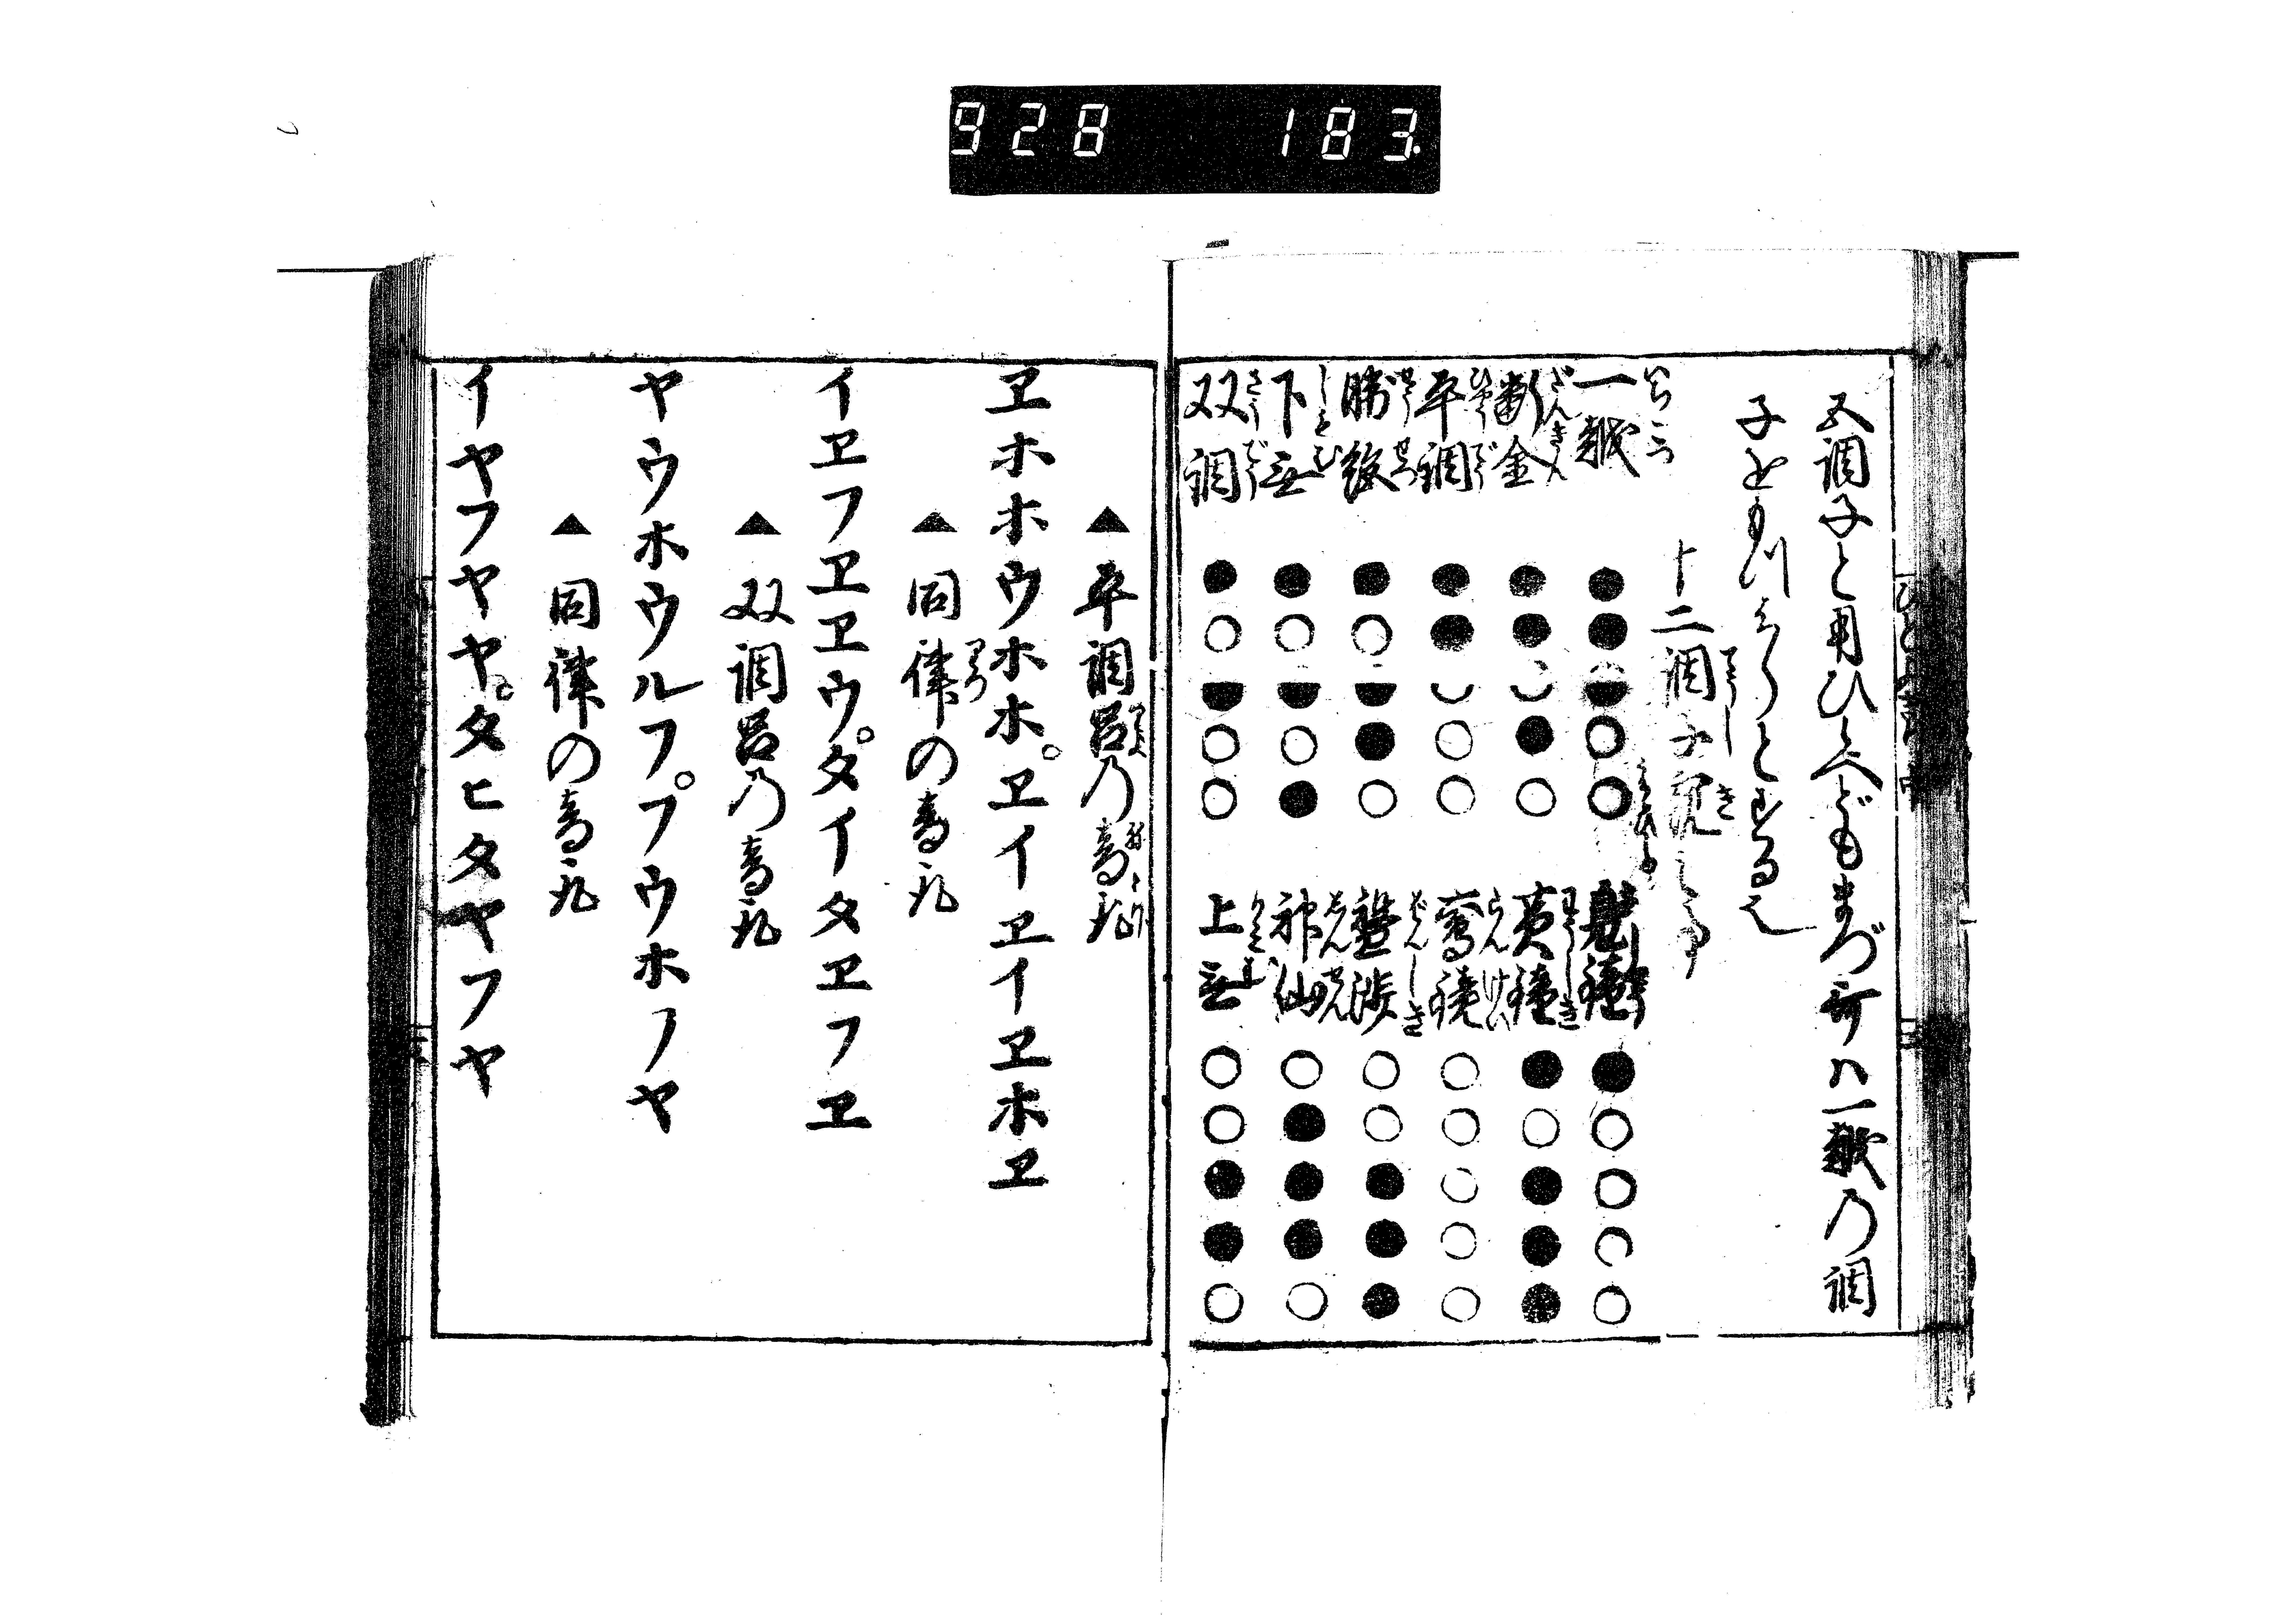 928 183.
五調子と用ひといへどもまづ哥ハ一越の調
子をもつはじめとするゆへ
十二調子
一越
断金
平調
勝絶
下無
双調
鳧鐘
黄鐘
鸞鏡
盤渉
神仙
上無
▲平調呂乃音取
ヱホホウホホ。ヱイヱイヱホヱ
▲同律の音取
イヱフヱヱウ。タイタヱフヱ
▲双調呂乃音取
ヤウホウルフ。フウホノヤ
▲同律の音取
イヤフヤヤ。タヒタヤフヤ